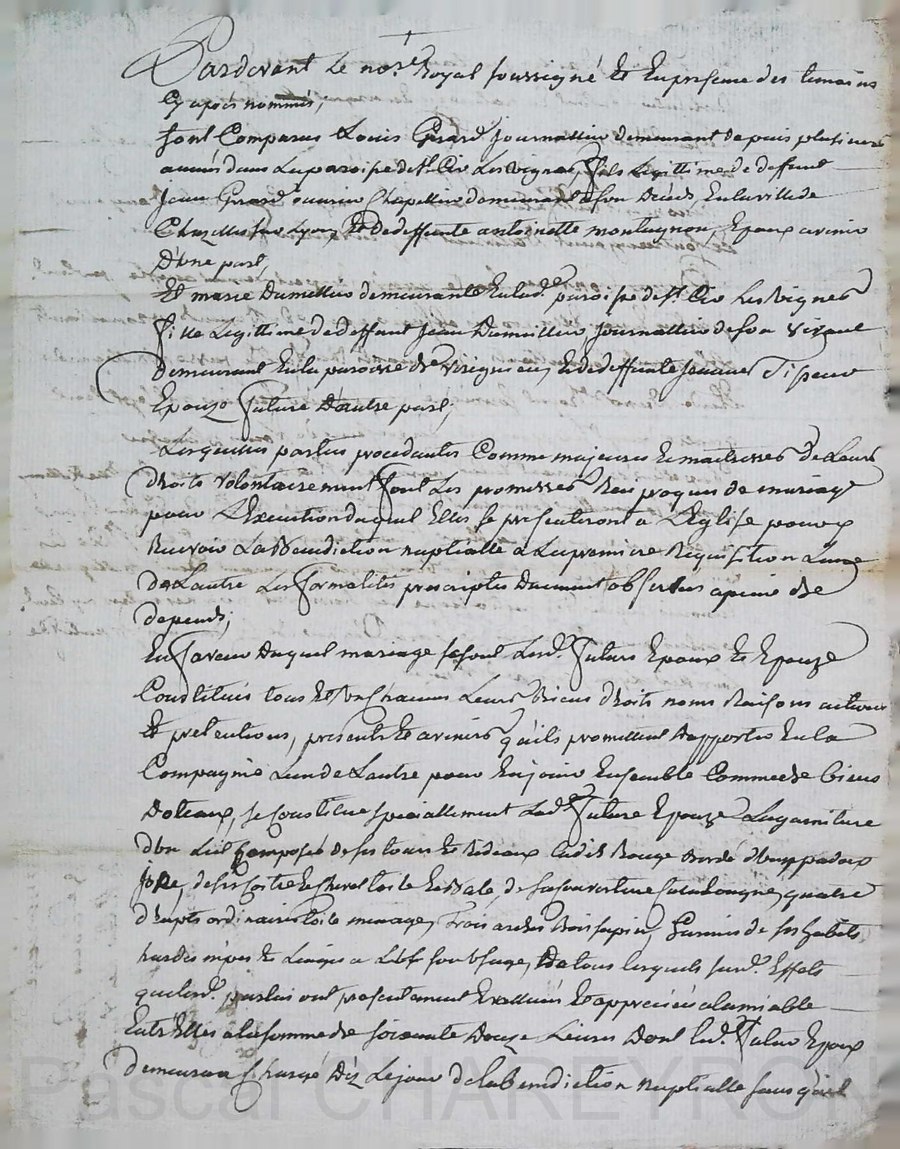 Pardevant Le no.re Royal soussigné Et En presence des temoins
Cy apres nommés,
sont Comparus Louis Girard Journallier demeurant depuis plusieurs
années dans La paroisse de St. Cir Les Vignes, fils Legittime de deffunt
Jean Girard ouvrier Chapellier demeurant a son Décés, En la ville de
Chazelles sur Lyon, Et de deffunte antoinette montagnon, Epoux avenir
D'une part,
Et marie Dumillier demeurante En lad.e paroisse de St. Cir Les Vignes
fille Legittime de deffunt Jean Dumillier, Journallier de son Vivant
demeurant En la paroisse de Virigneu, Et de deffunte
Epouze future D'autre part;
Lesquelles parties procedantes Comme majeures Et maitresses de Leurs
droits Volontairement font Les promesses Reciproques de mariage
pour L'Execution duquel Elles se presenteront a L'Eglise pour y
Recevoir La Benediction nuptialle a La premiere Requisition L'une
de Lautre Les formalités prescriptes Duement observées a peine de
depends;
En faveur Duquel mariage se sont Lesd. futurs Epoux Et Epouze
Constitués tous Et un Chacuns Leurs Biens droits noms Raisons actions
Et pretentions, presents Et avenirs qu'ils promettent Rapporter En la
Compagnie L'un de Lautre pour En jouir Ensemble Comme de biens
Doteaux, se Constitue speciallement Lad. future Epouze La garniture
d'un Lit Composée de ses tours Et Rideaux Cadis Rouge Bordé d'un padoux
de sa Couverture Catalongne, quatre
draps ordinaires toile menage, Trois arches Bois sapin, Garnies de ses habits
hardes nipes Et Linges a son usage, De tous lesquels susd. Effets
quelesd. parties ont presentement Evallués Et appreciés a lamiable
Entr'Elles a la somme de soixante Douze Livres Dont Led. futur Epoux
demeurera Chargé Dèz Le jour de la benediction nuptialle sans qu'il
Pascal CHAREYRON